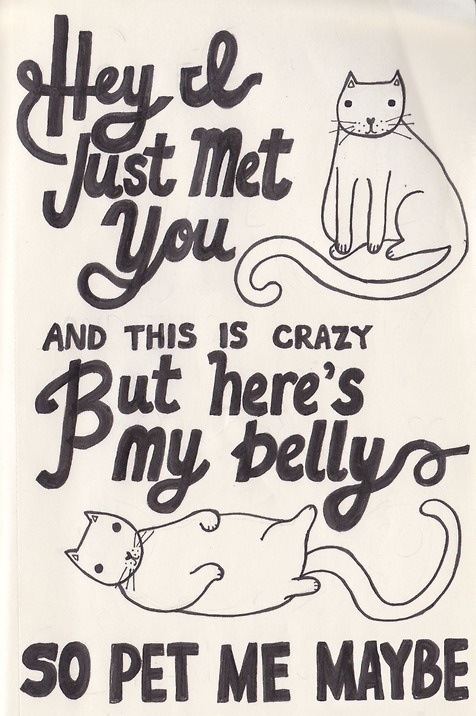 Hey I
Just Met
You
AND THIS IS CRAZY
But here's
my belly
SO PET ME MAYBE